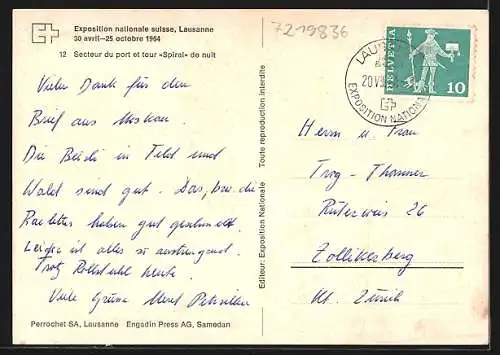 Exposition nationale suisse, Lausanne
30 avril-25 octobre 1964
12 Secteur du port et tour «Spiral» de nuit
7219836
Vielen Dank für den
Brief aus Moskau.
Die Bördi in Feld und
Wald sind gut. Das, bzw. die
haben gut geschmeckt.
Leider ist alles so anstrengend.
Trotz Rollstuhl heute.
Viele Grüsse
Perrochet SA, Lausanne Engadin Press AG, Samedan
Editeur: Exposition Nationale Toute reproduction interdite
LAUSANNE
20.V
EXPOSITION NATIONALE
HELVETIA
10
Herrn u. Frau
Trog-Thommer
26
Zollikerberg
Kt. Zürich